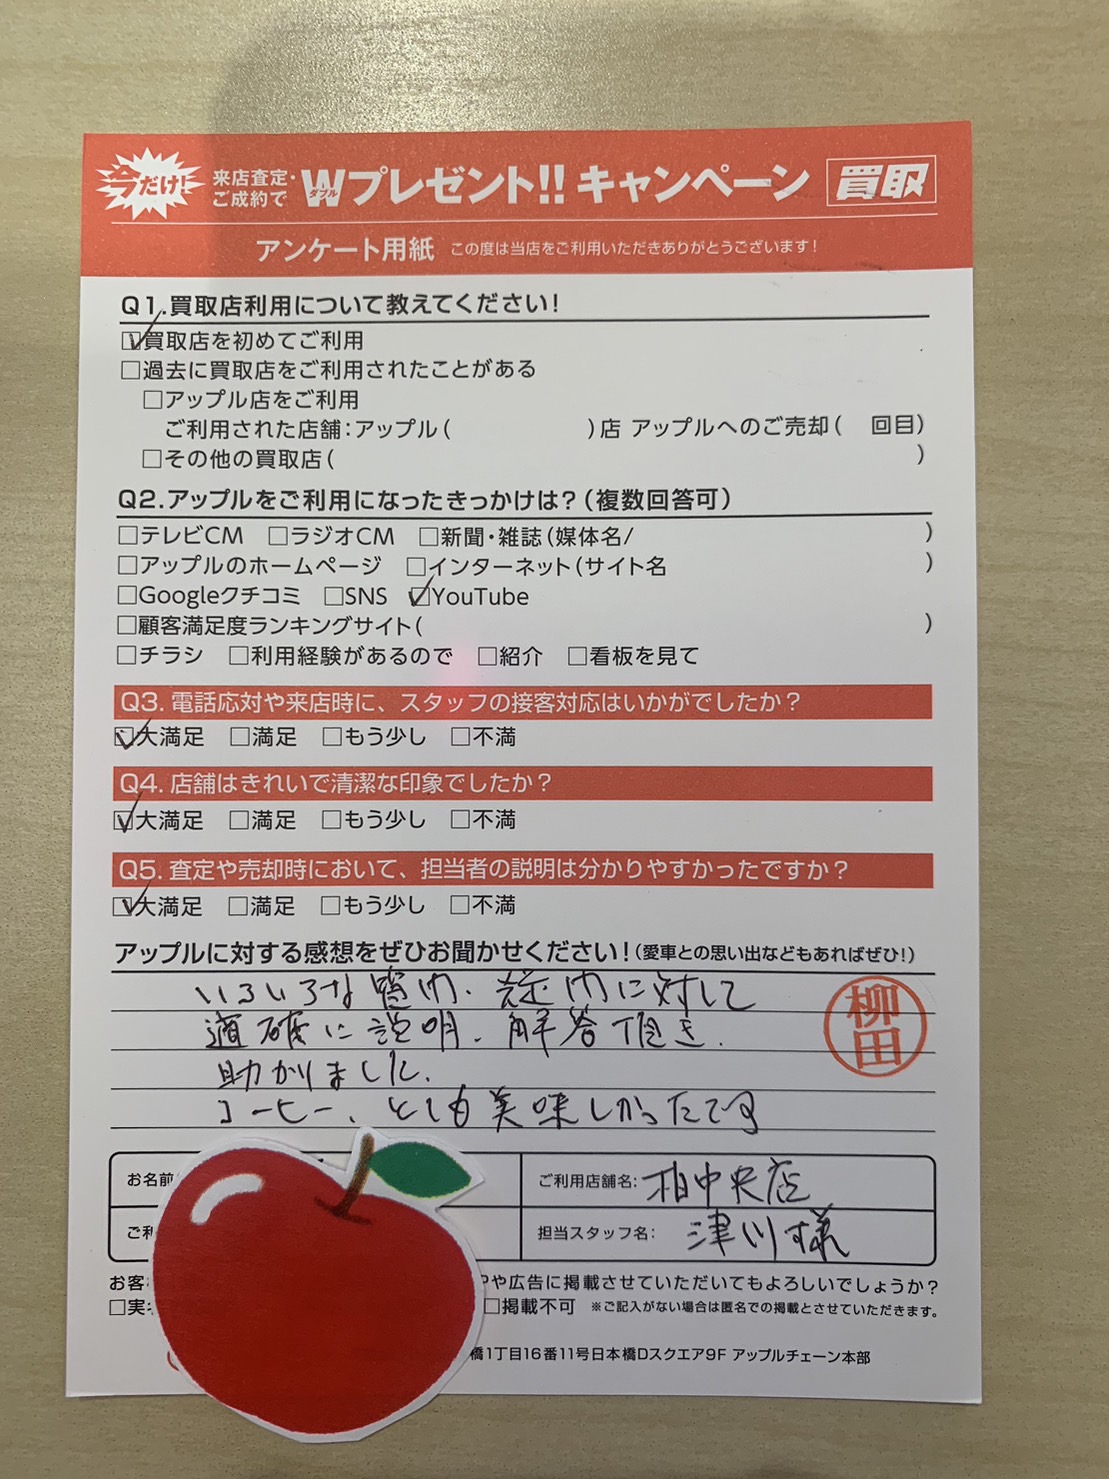 今だけ!
来店査定・
ご成約で
Wダブルプレゼント!!キャンペーン 買取
アンケート用紙 この度は当店をご利用いただきありがとうございます!
Q1.買取店利用について教えてください!
☑買取店を初めてご利用
□過去に買取店をご利用されたことがある
□アップル店をご利用
ご利用された店舗:アップル( )店 アップルへのご売却( 回目)
□その他の買取店( )
Q2.アップルをご利用になったきっかけは?(複数回答可)
□テレビCM □ラジオCM □新聞・雑誌(媒体名/ )
□アップルのホームページ □インターネット(サイト名 )
□Googleクチコミ □SNS ☑YouTube
□顧客満足度ランキングサイト( )
□チラシ □利用経験があるので □紹介 □看板を見て
Q3. 電話応対や来店時に、スタッフの接客対応はいかがでしたか?
☑大満足 □満足 □もう少し □不満
Q4. 店舗はきれいで清潔な印象でしたか?
☑大満足 □満足 □もう少し □不満
Q5. 査定や売却時において、担当者の説明は分かりやすかったですか?
☑大満足 □満足 □もう少し □不満
アップルに対する感想をぜひお聞かせください!(愛車との思い出などもあればぜひ!)
いろいろな質問、に対して
適確に説明、解答頂き、
助かりました。
コーヒー、とても美味しかったです
柳田
お名前 ご利用店舗名: 柏中央店
ご利 担当スタッフ名: 津川様
お客 Pや広告に掲載させていただいてもよろしいでしょうか?
□実 □掲載不可 ※ご記入がない場合は匿名での掲載とさせていただきます。
橋1丁目16番11号日本橋Dスクエア9F アップルチェーン本部